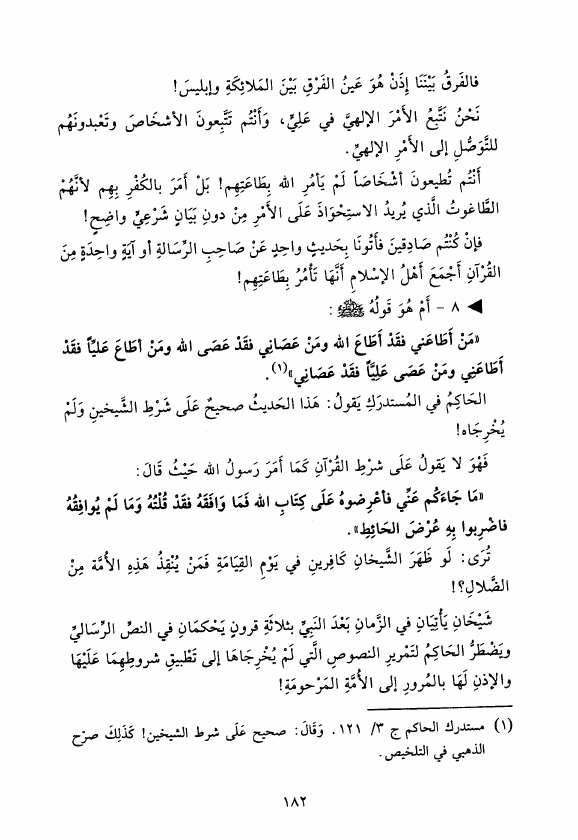 فالفَرقُ بَيْنَنَا إِذَنْ هُوَ عَينُ الفَرْقِ بَيْنَ المَلائِكَةِ وإبليسَ!
نَحْنُ نَتَّبِعُ الأَمْرَ الإلهيَّ في عَلِيٍّ، وَأَنْتُم تَتَّبِعونَ الأشخاصَ وتَعْبدونَهُم
للتَّوَصُّلِ إلى الأَمْرِ الإلهيِّ.
أَنْتُم تُطيعونَ أشْخَاصَاً لَمْ يَأمُرِ الله بِطَاعَتِهِم! بَلْ أَمَرَ بالكُفْرِ بِهِم لأنَّهُمْ
الطَّاغوتُ الَّذي يُريدُ الاستِحْوَاذَ عَلَى الأَمْرِ مِنْ دونِ بَيَانٍ شَرْعِيٍّ واضِحٍ!
فإنْ كُنْتُم صَادِقينَ فَأْتُونَا بِحَديثٍ واحِدٍ عَنْ صَاحِبِ الرِّسَالَةِ أو آيَةٍ واحِدَةٍ مِنَ
القُرْآنِ أجْمَعَ أَهْلُ الإسْلامِ أنَّهَا تَأْمُرُ بِطَاعَتِهِم!
◄ ٨ - أَمْ هُوَ قَولُهُ ﷺ :
«مَنْ أَطَاعَني فقَدْ أَطَاعَ الله ومَنْ عَصَانِي فقَدْ عَصَى الله ومَنْ أطَاعَ عَليَّاً فقَدْ
أَطَاعَنِي ومَنْ عَصَى عَلِيَّاً فقَدْ عَصَانِي»(١).
الحَاكِمُ في المُستدرَكِ يَقولُ: هَذا الحَديثُ صحيحٌ عَلَى شَرْطِ الشَّيخينِ وَلَمْ
يُخْرِجَاه!
فَهْوَ لا يَقولُ عَلَى شرْطِ القُرْآنِ كَمَا أمَرَ رَسولُ الله حَيْثُ قَالَ:
«مَا جَاءَكُم عَنِّي فأعْرِضوهُ عَلَى كِتَابِ الله فَمَا وَافَقَهُ فقَدْ قُلْتُهُ وَمَا لَمْ يُوافِقْهُ
فاضْرِبوا بِهِ عُرْضَ الحَائِطِ».
تُرَى: لَو ظَهَرَ الشَّيخانِ كَافِرينِ في يَوْمِ القِيَامَةِ فَمَنْ يُنْقِذُ هَذِهِ الأُمَّة مِنْ
الضَّلالِ؟!
شَيْخَانِ يَأتِيَانِ في الزَّمانِ بَعْدَ النَّبِيِّ بثلاثَةِ قرونٍ يَحْكمَانِ في النصِّ الرِّساليِّ
ويَضْطَرُّ الحَاكِمُ لتَمْريرِ النصوصِ الَّتي لَمْ يُخْرِجَاهَا إلى تَطْبيقِ شروطِهِمَا عَلَيْهَا
والإذنِ لَهَا بالمُرورِ إلى الأُمَّةِ المَرْحومَةِ!
(١) مستدرك الحاكم ج ٣/ ١٢١. وَقَالَ: صحيح عَلَى شرط الشيخين! كَذَلِكَ صرّح
الذهبي في التلخيص.
١٨٢